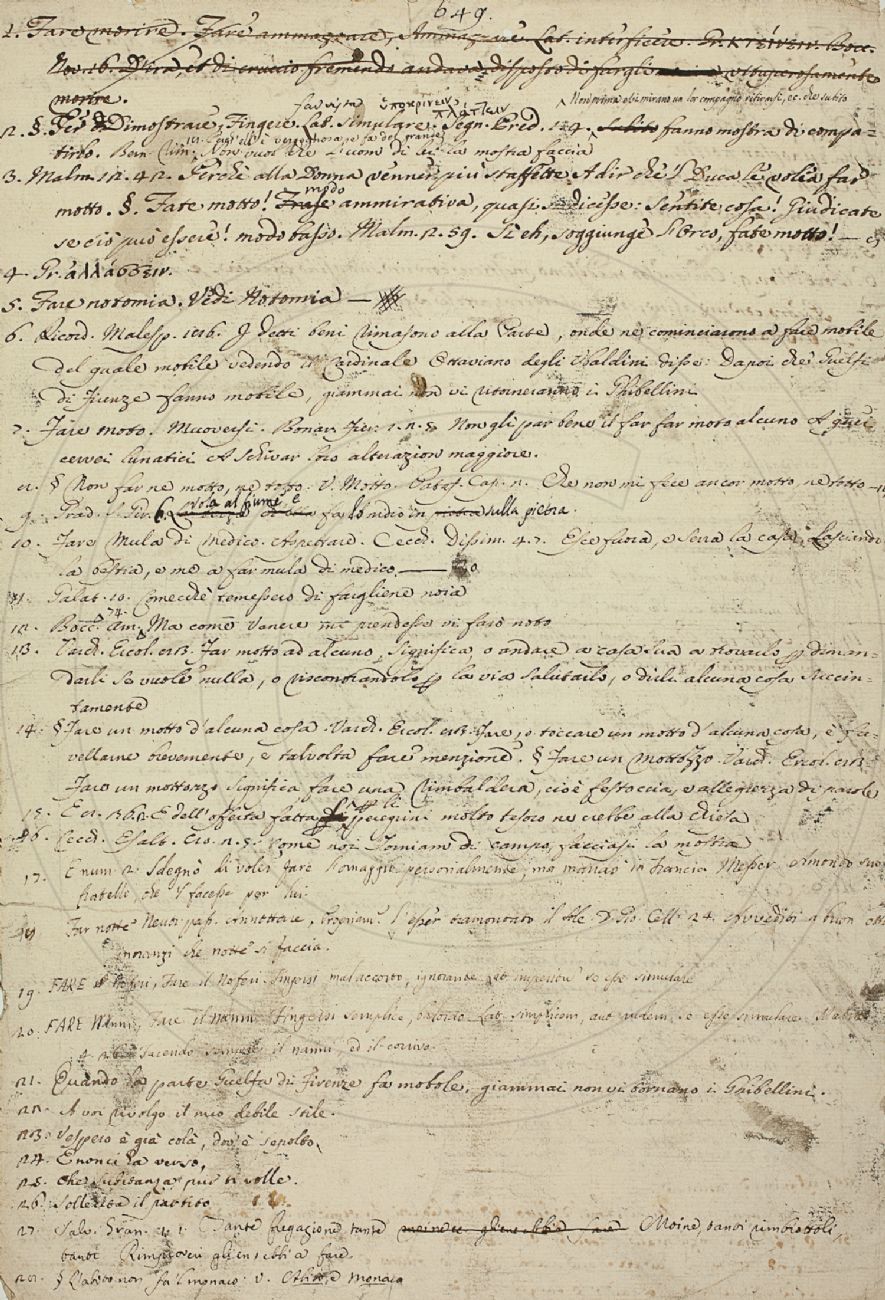 649.
1. Fare morire. Fare ammazzare, Ammazzare. Lat. interficere. Gr. κτείνειν. Bocc.
Nov. 16.
morire.
far vista
Non prima ebbi mirano un lor compagno
2. §. Per Dimostrare, Fingere. Lat. simulare. Segn. Pred. 1. 9. Subito fanno mostra di compa-
tirlo. Non vuol che
la mostra faccia
3. Malm. 12. 42. Perchè alla Donna venner più staffette A dir che 'l Duca le volea far
modo
motto. §. Fate motto! Frase ammirativa, quasi si dicesse: Sentite cosa! Giudicate
se ciò può essere! modo basso. Malm. 12. 59. Sì eh, soggiunge l'Orco, fate motto! —
4. Gr. ἀλλάσσειν.
5. Fare notomia. Vedi Notomia —
6. Ricord. Malesp. 186. I detti beni rimasono alla Parte, onde ne cominciarono a fare mobile
del quale mobile vedendo il Cardinale Ottaviano degli Ubaldini disse: Dapoi che Guelfi
di Firenze fanno mobile, giammai non vi ritorneranno i Ghibellini
7. Fare moto. Muoversi. Bonar. Fier. 1. 2. 5. Non gli par bene il far far moto alcuno A quei
cervei lunatici A schivar loro alterazion maggiore.
8. § Non far nè motto, nè totto. v. Motto. Pataf. Cap. 2. Che non mi fece ancor motto, nè totto —
vola al fiume e
9. fa lo nidio in sulla pietra.
10. Fare Mula di medico. Aspettare. Cecch. Dissim. 4. 7. Esce fuora, e serra la casa, Lasciando
la bestia, e me a far mula di medico.
11. Galat. 10. Comecchè temessero di fargliene noia
12. Bocc. Am. 74. Ma come Venere me prendesse vi farò noto
13. Varch. Ercol. 83. Far motto ad alcuno, significa, o andare a casa sua a trovarlo p diman-
darli se vuole nulla, o riscontrandolo p la via salutarlo, o dirli alcuna cosa succin-
tamente
14. § Fare un motto d'alcuna cosa. Varch. Ercol. 83. Fare, o toccare un motto d'alcuna cosa, è fa-
vellarne brevemente, e talvolta fare menzione. § Fare un Mottozzo. Varch. Ercol. 83.
Fare un mottozzo significa fare una Rimbaldera, cioè festoccia, e allegrezza di parole
15. E dell'offerta fatta peregrini molto tesoro ne crebbe alla Chiesa
16. Cecch. Esalt. Cro. 2. 5. Come noi Torniam di campo, facciasi la mostra
17. E num. 2. Sdegnò di voler fare l'omaggio personalmente, ma mandò in Francia Messer Amondo suo
fratello, che 'l facesse per lui.
18. Far notte. Neutr. pass. Annottare, Propriam. l'esser tramontato il Sole. D. Gio. Cell. 24. Avvedersi a buon otta
innanzi che notte si faccia.
19. FARE il Noferi, Fare il Noferi. Fingersi malaccorto, ignorante
20. FARE Nanni, Fare il Nanni. Fingersi semplice, balordo. Lat. simplicem, aut rudem se esse simulare. Malm.
4. 26. Facendo sempre il nanni, ed il corrivo.
21. Quando la parte Guelfa di Firenze fa mobole, giammai non vi tornano i Ghibellini.
22. A voi rivolgo il mio debile stile.
23. Vespero è già colà, dov'è sepolto,
24. E non ci ha verso,
25. che sustanza pur ti volle.
26. Sollecita il partito
27. Salv. Gran. 2. 1. Tante fregazioni tante Moine, tanti rimbrottoli,
tanti Rimproveri gliensebbi a fare.
28. § L'abito non fa 'l monaco. v. Abito, e Monaco